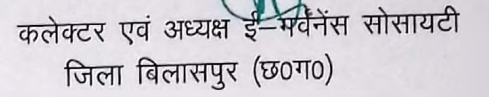 कलेक्टर एवं अध्यक्ष ई-गर्वनेंस सोसायटी
जिला बिलासपुर (छ0ग0)